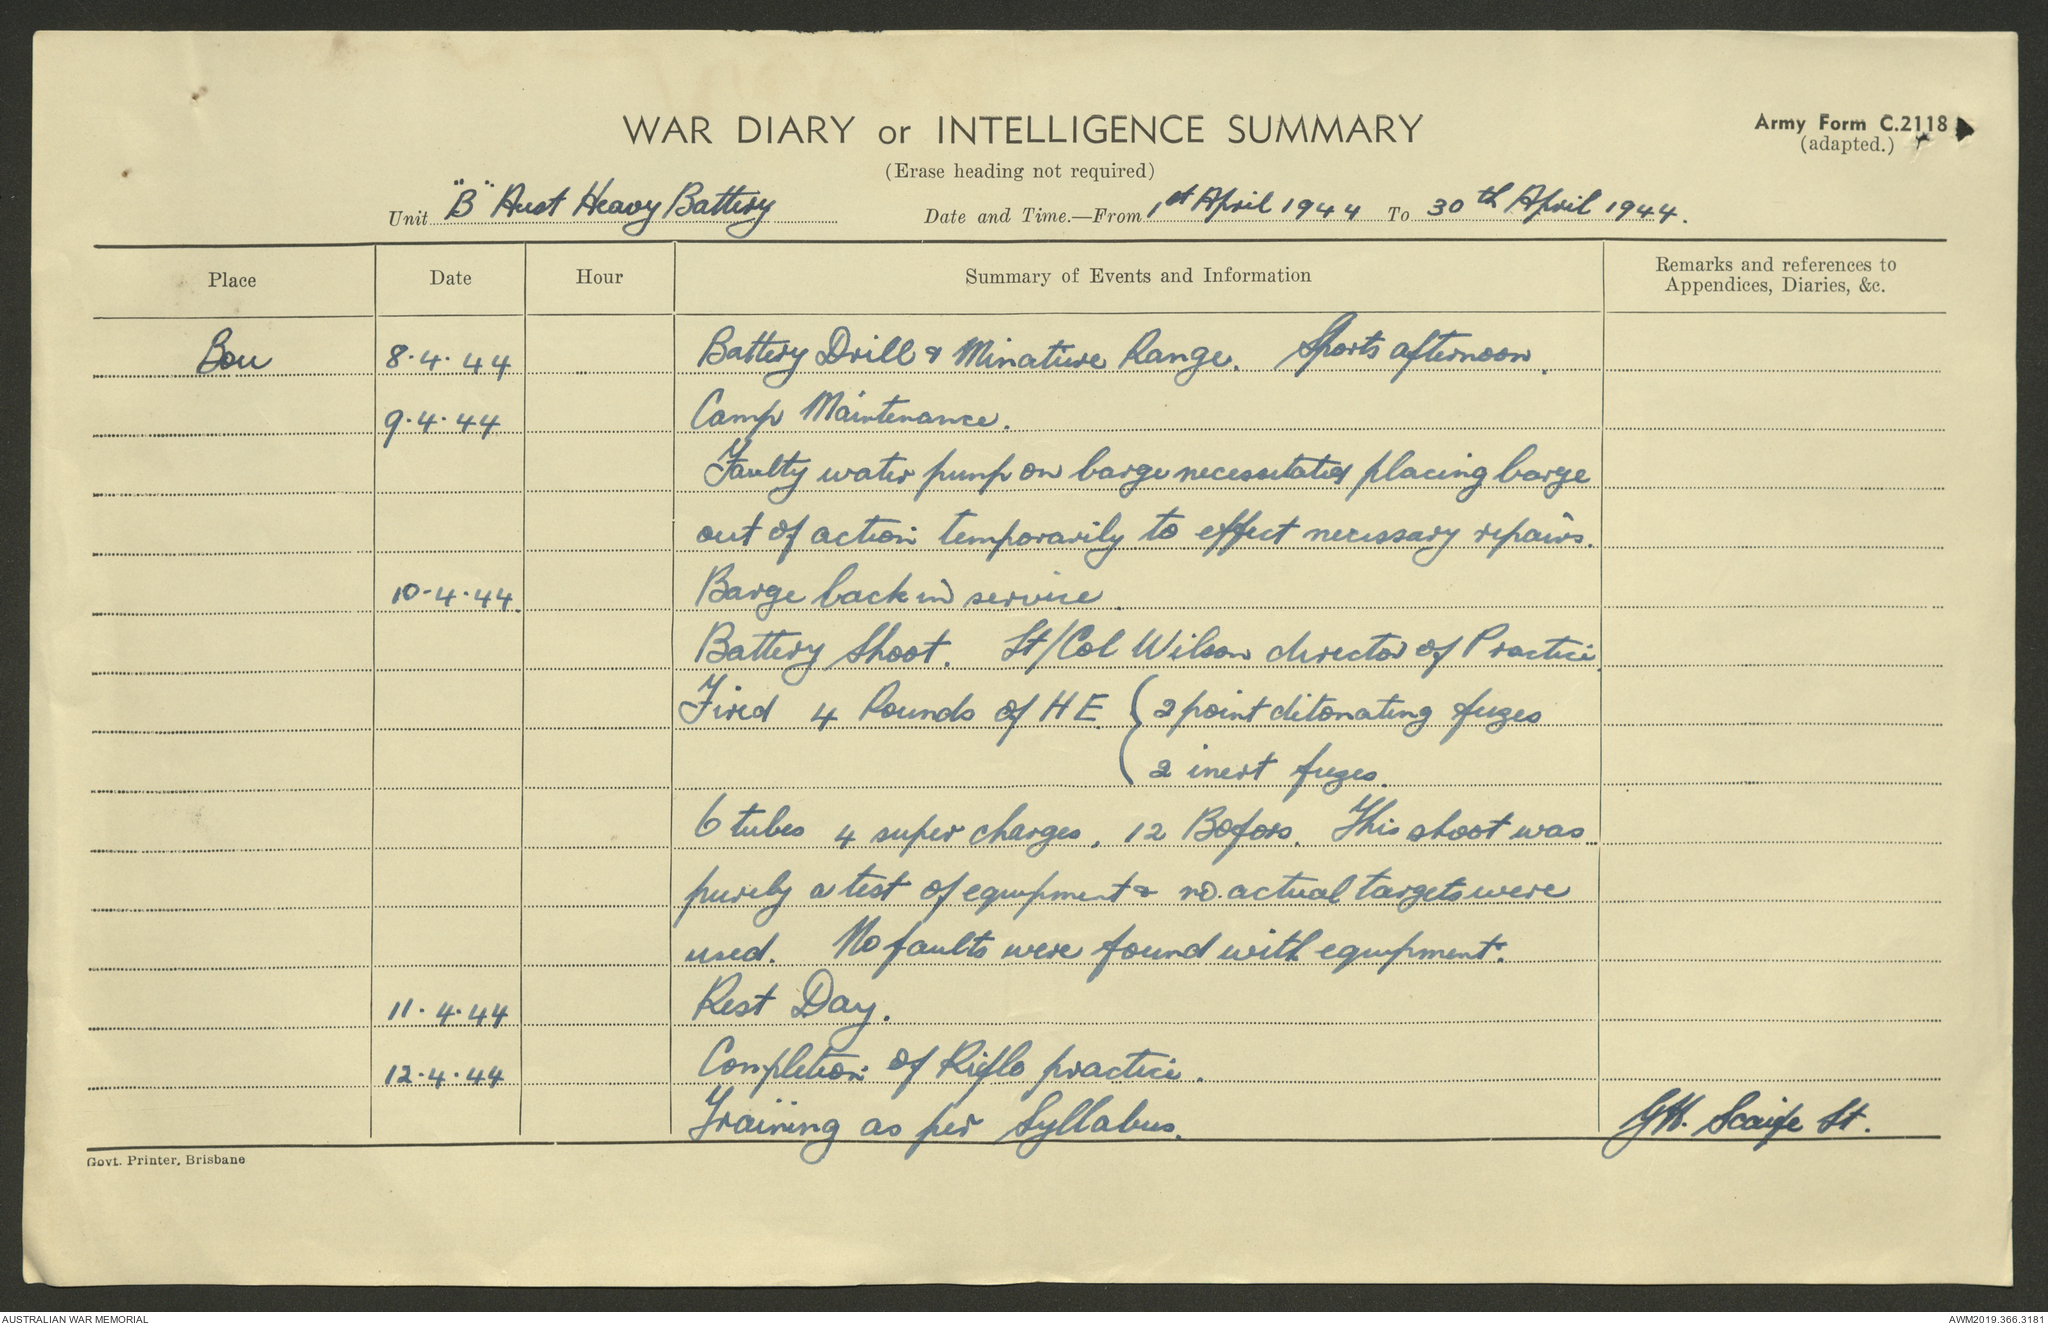 WAR DIARY or INTELLIGENCE SUMMARY
Army Form C.2118
(adapted.)
(Erase heading not required)
Unit "B" Aust Heavy Battery Date and Time.—From 1st April 1944 To 30th April 1944.
Place Date Hour Summary of Events and Information Remarks and references to
Appendices, Diaries, &c.
Bou 8.4.44 Battery Drill & Minature Range. Sports afternoon.
9.4.44 Camp Maintenance.
Faulty water pump on barge necessitated placing barge
out of action temporarily to effect necessary repairs.
10.4.44. Barge back in service.
Battery Shoot. Lt/Col Wilson director of Practice.
Fired 4 Rounds of HE. ( 2 point detonating fuzes
( 2 inert fuzes.
6 tubes 4 super charges, 12 Bofors. This shoot was
purely a test of equipment & no actual targets were
used. No faults were found with equipment.
11.4.44 Rest Day.
12.4.44 Completion of Rifle practice.
Training as per Syllabus. Scaife Lt.
Govt. Printer, Brisbane
AUSTRALIAN WAR MEMORIAL
AWM2019.366.3181